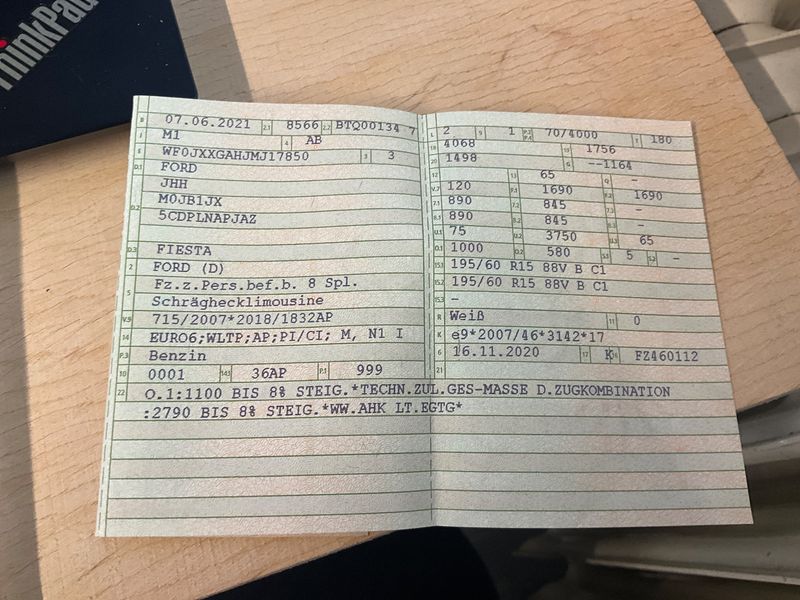 ThinkPad
B 07.06.2021 2.1 8566 2.2 BTQ00134 7
J M1 4 AB
WF0JXXGAHJMJ17850 3 3
D.1 FORD
JHH
D.2 M0JB1JX
5CDPLNAPJAZ
D.3 FIESTA
2 FORD (D)
5 Fz.z.Pers.bef.b. 8 Spl.
Schräghecklimousine
V.9 715/2007*2018/1832AP
14 EURO6;WLTP;AP;PI/CI; M, N1 I
P.3 Benzin
10 0001 14.1 36AP P.1 999
L 2 9 1 P.2 P.4 70/4000 T 180
18 4068 19 1756
20 1498 G --1164
12 - 13 65 Q -
V.7 120 F.1 1690 F.2 1690
7.1 890 7.2 845 7.3 -
8.1 890 8.2 845 8.3 -
U.1 75 U.2 3750 U.3 65
O.1 1000 O.2 580 S.1 5 S.2 -
15.1 195/60 R15 88V B C1
15.2 195/60 R15 88V B C1
15.3 -
R Weiß 11 0
K e9*2007/46*3142*17
6 16.11.2020 17 K 16 FZ460112
21
22 O.1:1100 BIS 8% STEIG.*TECHN.ZUL.GES-MASSE D.ZUGKOMBINATION
:2790 BIS 8% STEIG.*WW.AHK LT.EGTG*